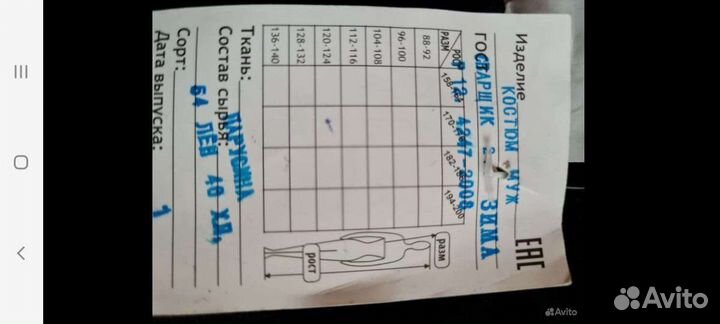 Изделие КОСТЮМ МУЖ
СВАРЩИК 2 ЗИМА
ГОС Р 12 4 247-2008
EAC
РОС
РАЗМ
170-
182-18
194-200
88-92
96-100
104-108
112-116
120-124
128-132
136-140
разм
рост
Ткань: ПАРУСИНА
Состав сырья:
ЛЕН ХЛ,
Сорт: 1
Дата выпуска:
Avito
Avito